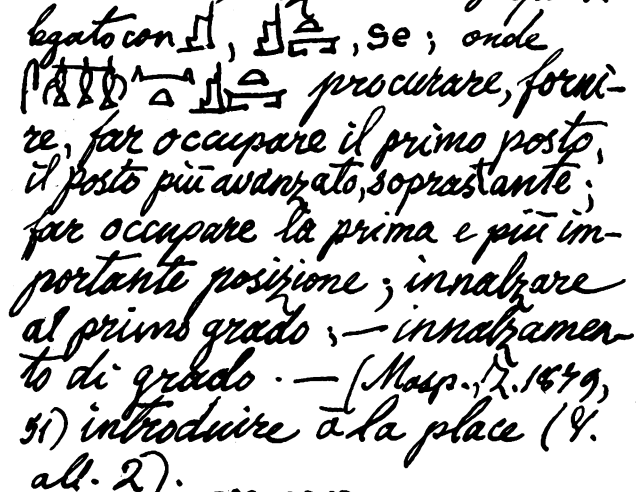 legato con 𓊨, 𓊨𓏏𓉐, se; onde
procurare, forni-
re, far occupare il primo posto,
il posto più avanzato, soprastante;
far occupare la prima e più im-
portante posizione; innalzare
al primo grado; — innalzamen-
to di grado. — (Masp., Z. 1879,
51) introduire à la place (V.
all. 2).